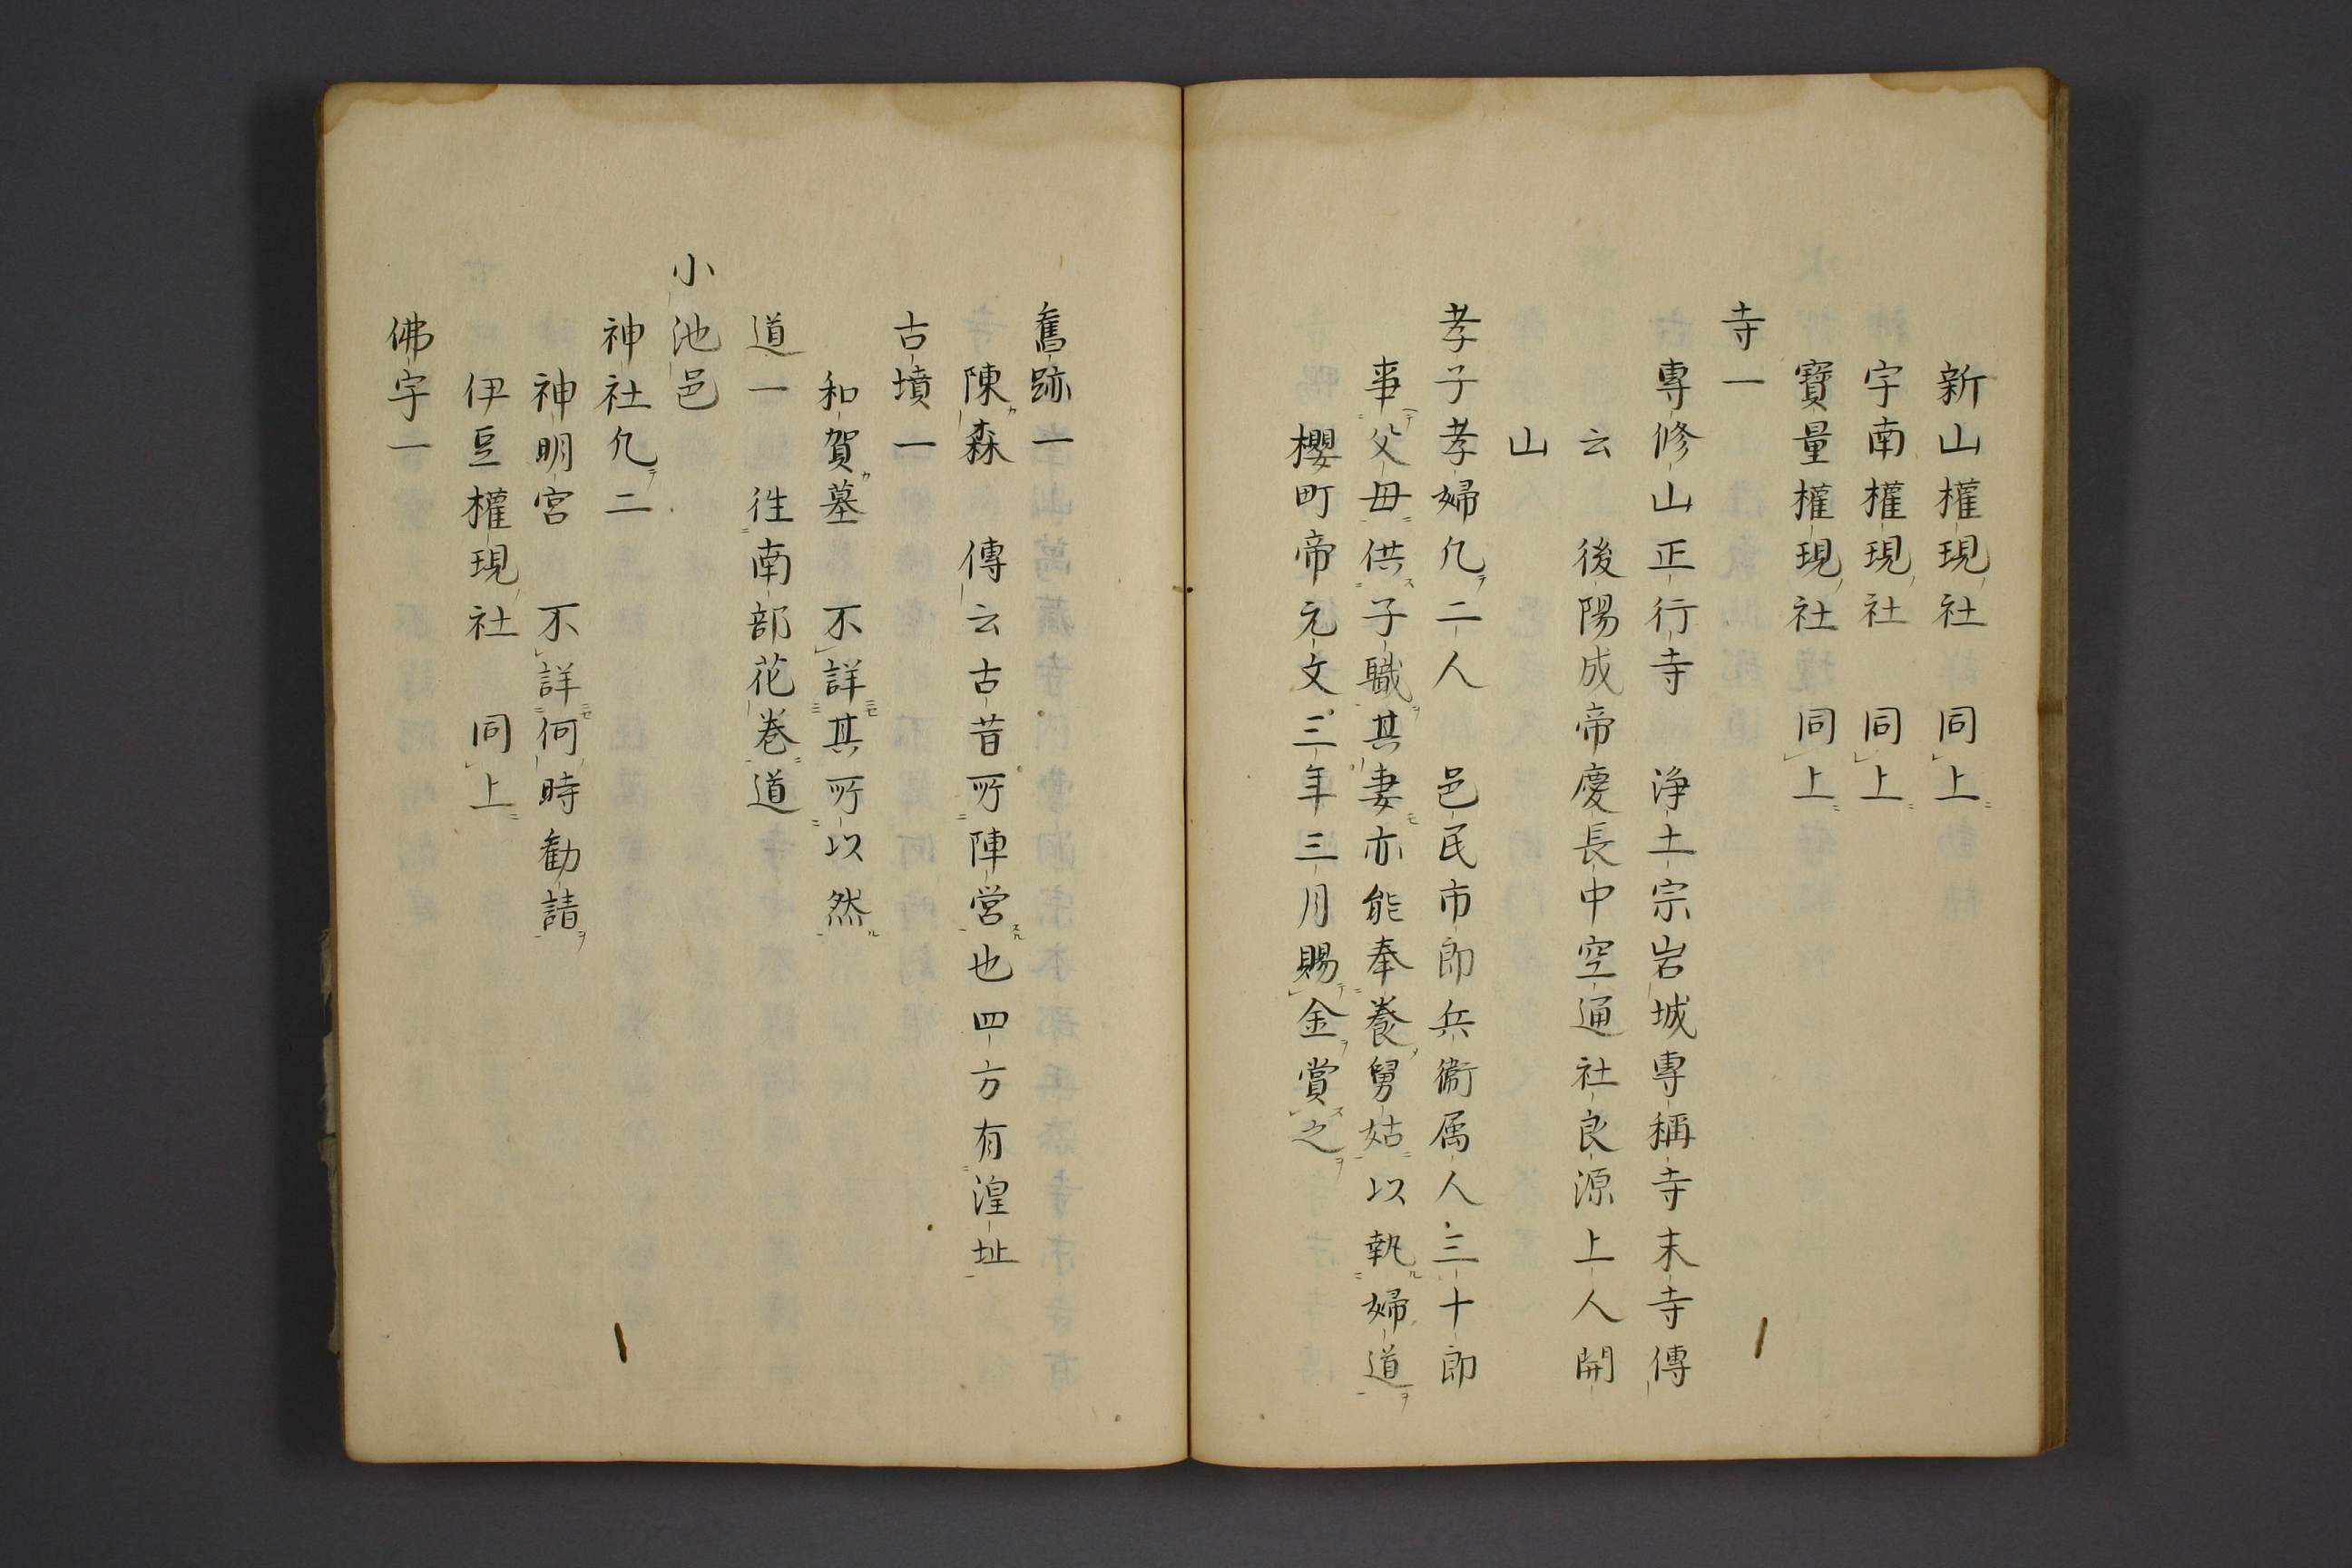 新山權現社　同上
宇南權現社　同上
寶量權現社　同上
寺一
專修山正行寺　浄土宗岩城專稱寺末寺傳
云　後陽成帝慶長中空通社良源上人開
山
孝子孝婦凢二人　邑民市郎兵衞属人三十郎
事父母供子職其妻亦能奉養舅姑以執婦道
櫻町帝元文三年三月賜金賞之
舊跡一
陳森　傳云古昔所陣営也四方有湟址
古墳一
和賀墓　不詳其所以然
道一　徃南部花巻道
小池邑
神社凢二
神明宮　不詳何時勸請
伊豆權現社　同上
佛宇一